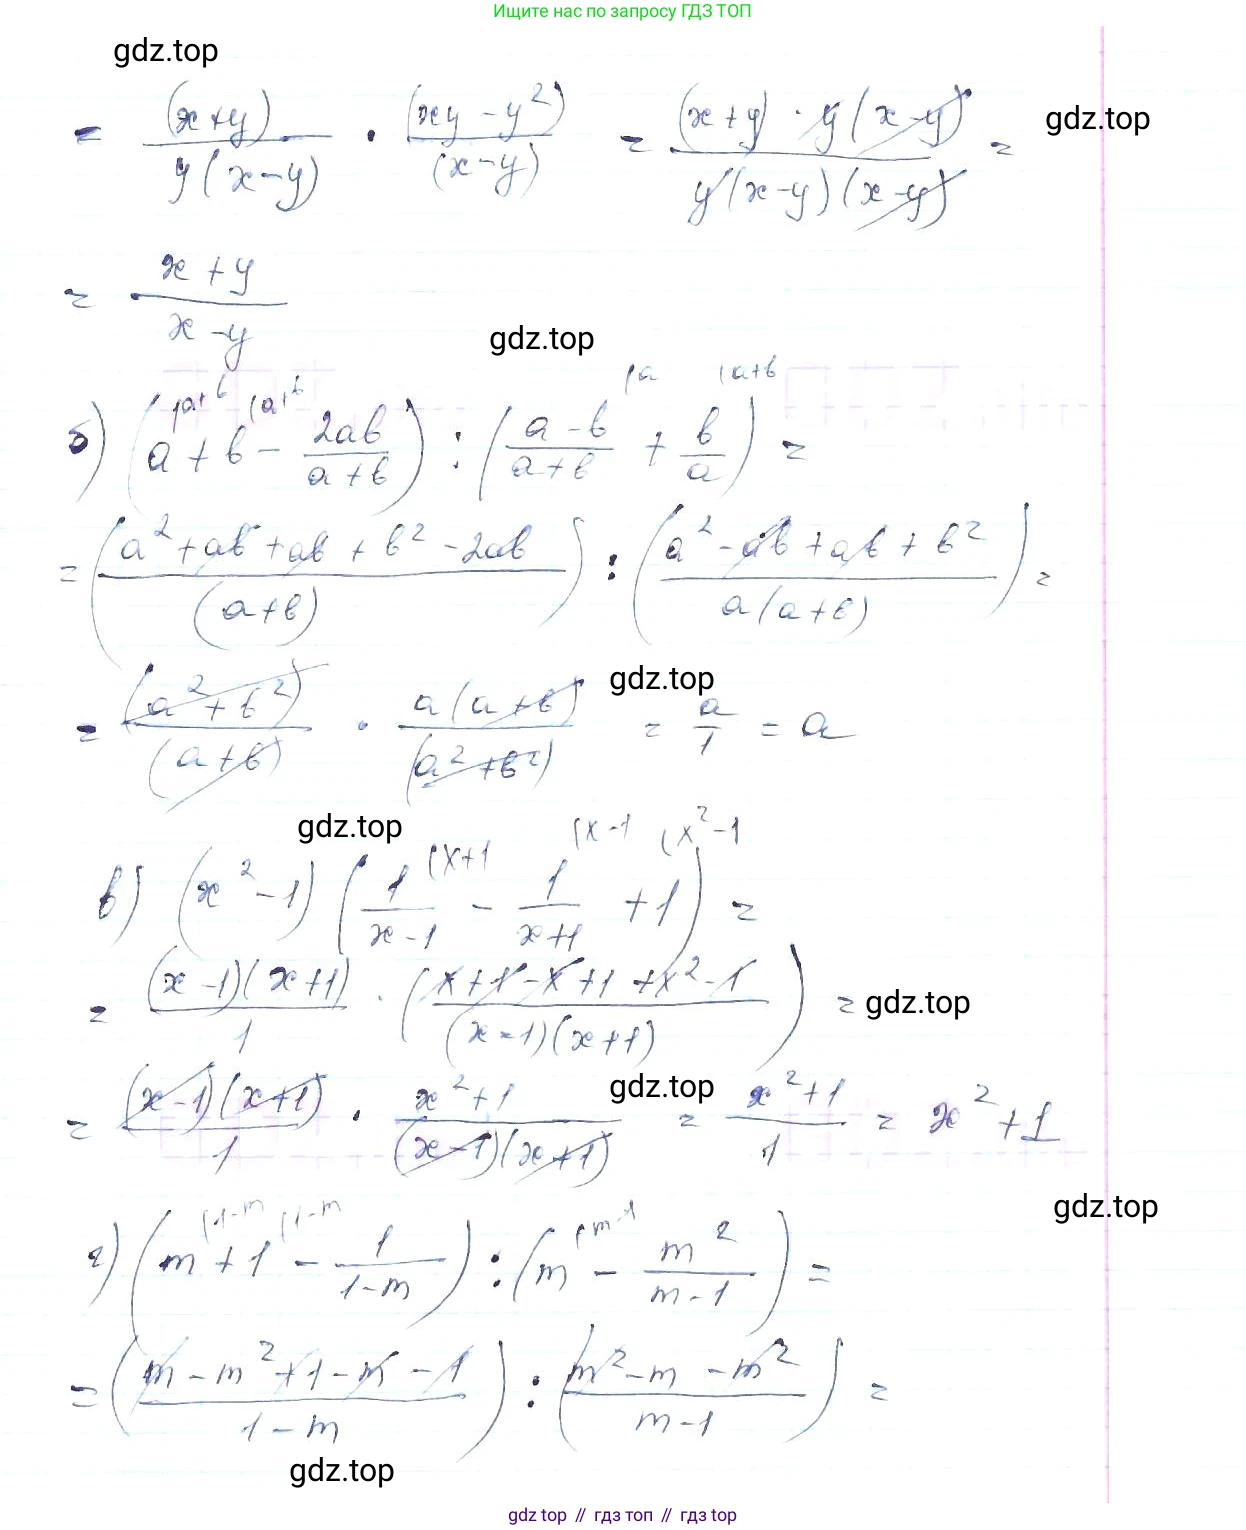 Ищите нас по запросу ГДЗ ТОП
gdz.top
= (x+y)/(y(x-y)) · (xy-y²)/(x-y) = ((x+y)·y(x-y))/(y(x-y)(x-y)) =
gdz.top
= (x+y)/(x-y)
gdz.top
(a+b (a+b (a (a+b
б) (a+b - 2ab/(a+b)) : ((a-b)/(a+b) + b/a) =
= ((a²+ab+ab+b²-2ab)/(a+b)) : ((a²-ab+ab+b²)/(a(a+b))) =
gdz.top
= (a²+b²)/(a+b) · a(a+b)/(a²+b²) = a/1 = a
gdz.top
(x+1 (x-1 (x²-1
в) (x²-1) (1/(x-1) - 1/(x+1) + 1) =
= (x-1)(x+1)/1 · ((x+1-x+1+x²-1)/((x-1)(x+1))) =
gdz.top
gdz.top
= (x-1)(x+1)/1 · (x²+1)/((x-1)(x+1)) = (x²+1)/1 = x²+1
gdz.top
(1-m (1-m (m-1
г) (m+1 - 1/(1-m)) : (m - m²/(m-1)) =
= ((m-m²+1-m-1)/(1-m)) : ((m²-m-m²)/(m-1)) =
gdz.top
gdz top // гдз топ // gdz top